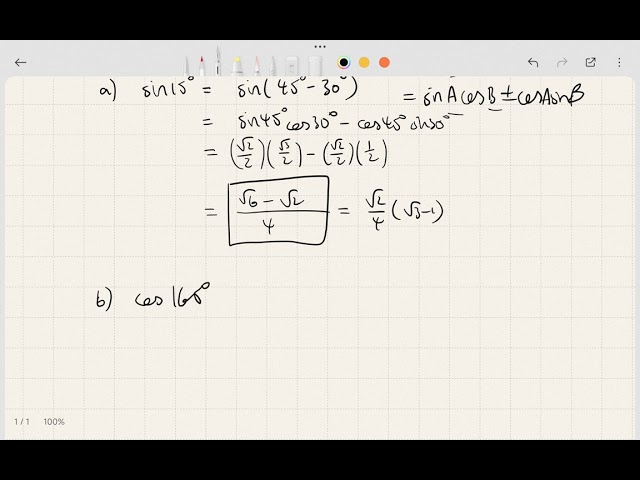 a) sin15° = sin(45°-30°) = sinAcosB ± cosAsinB
= sin45°cos30° - cos45°sin30°
= (√2/2)(√3/2) - (√2/2)(1/2)
= √6 - √2/4 = √2/4(√3-1)
b) cos165°
1 / 1 100%